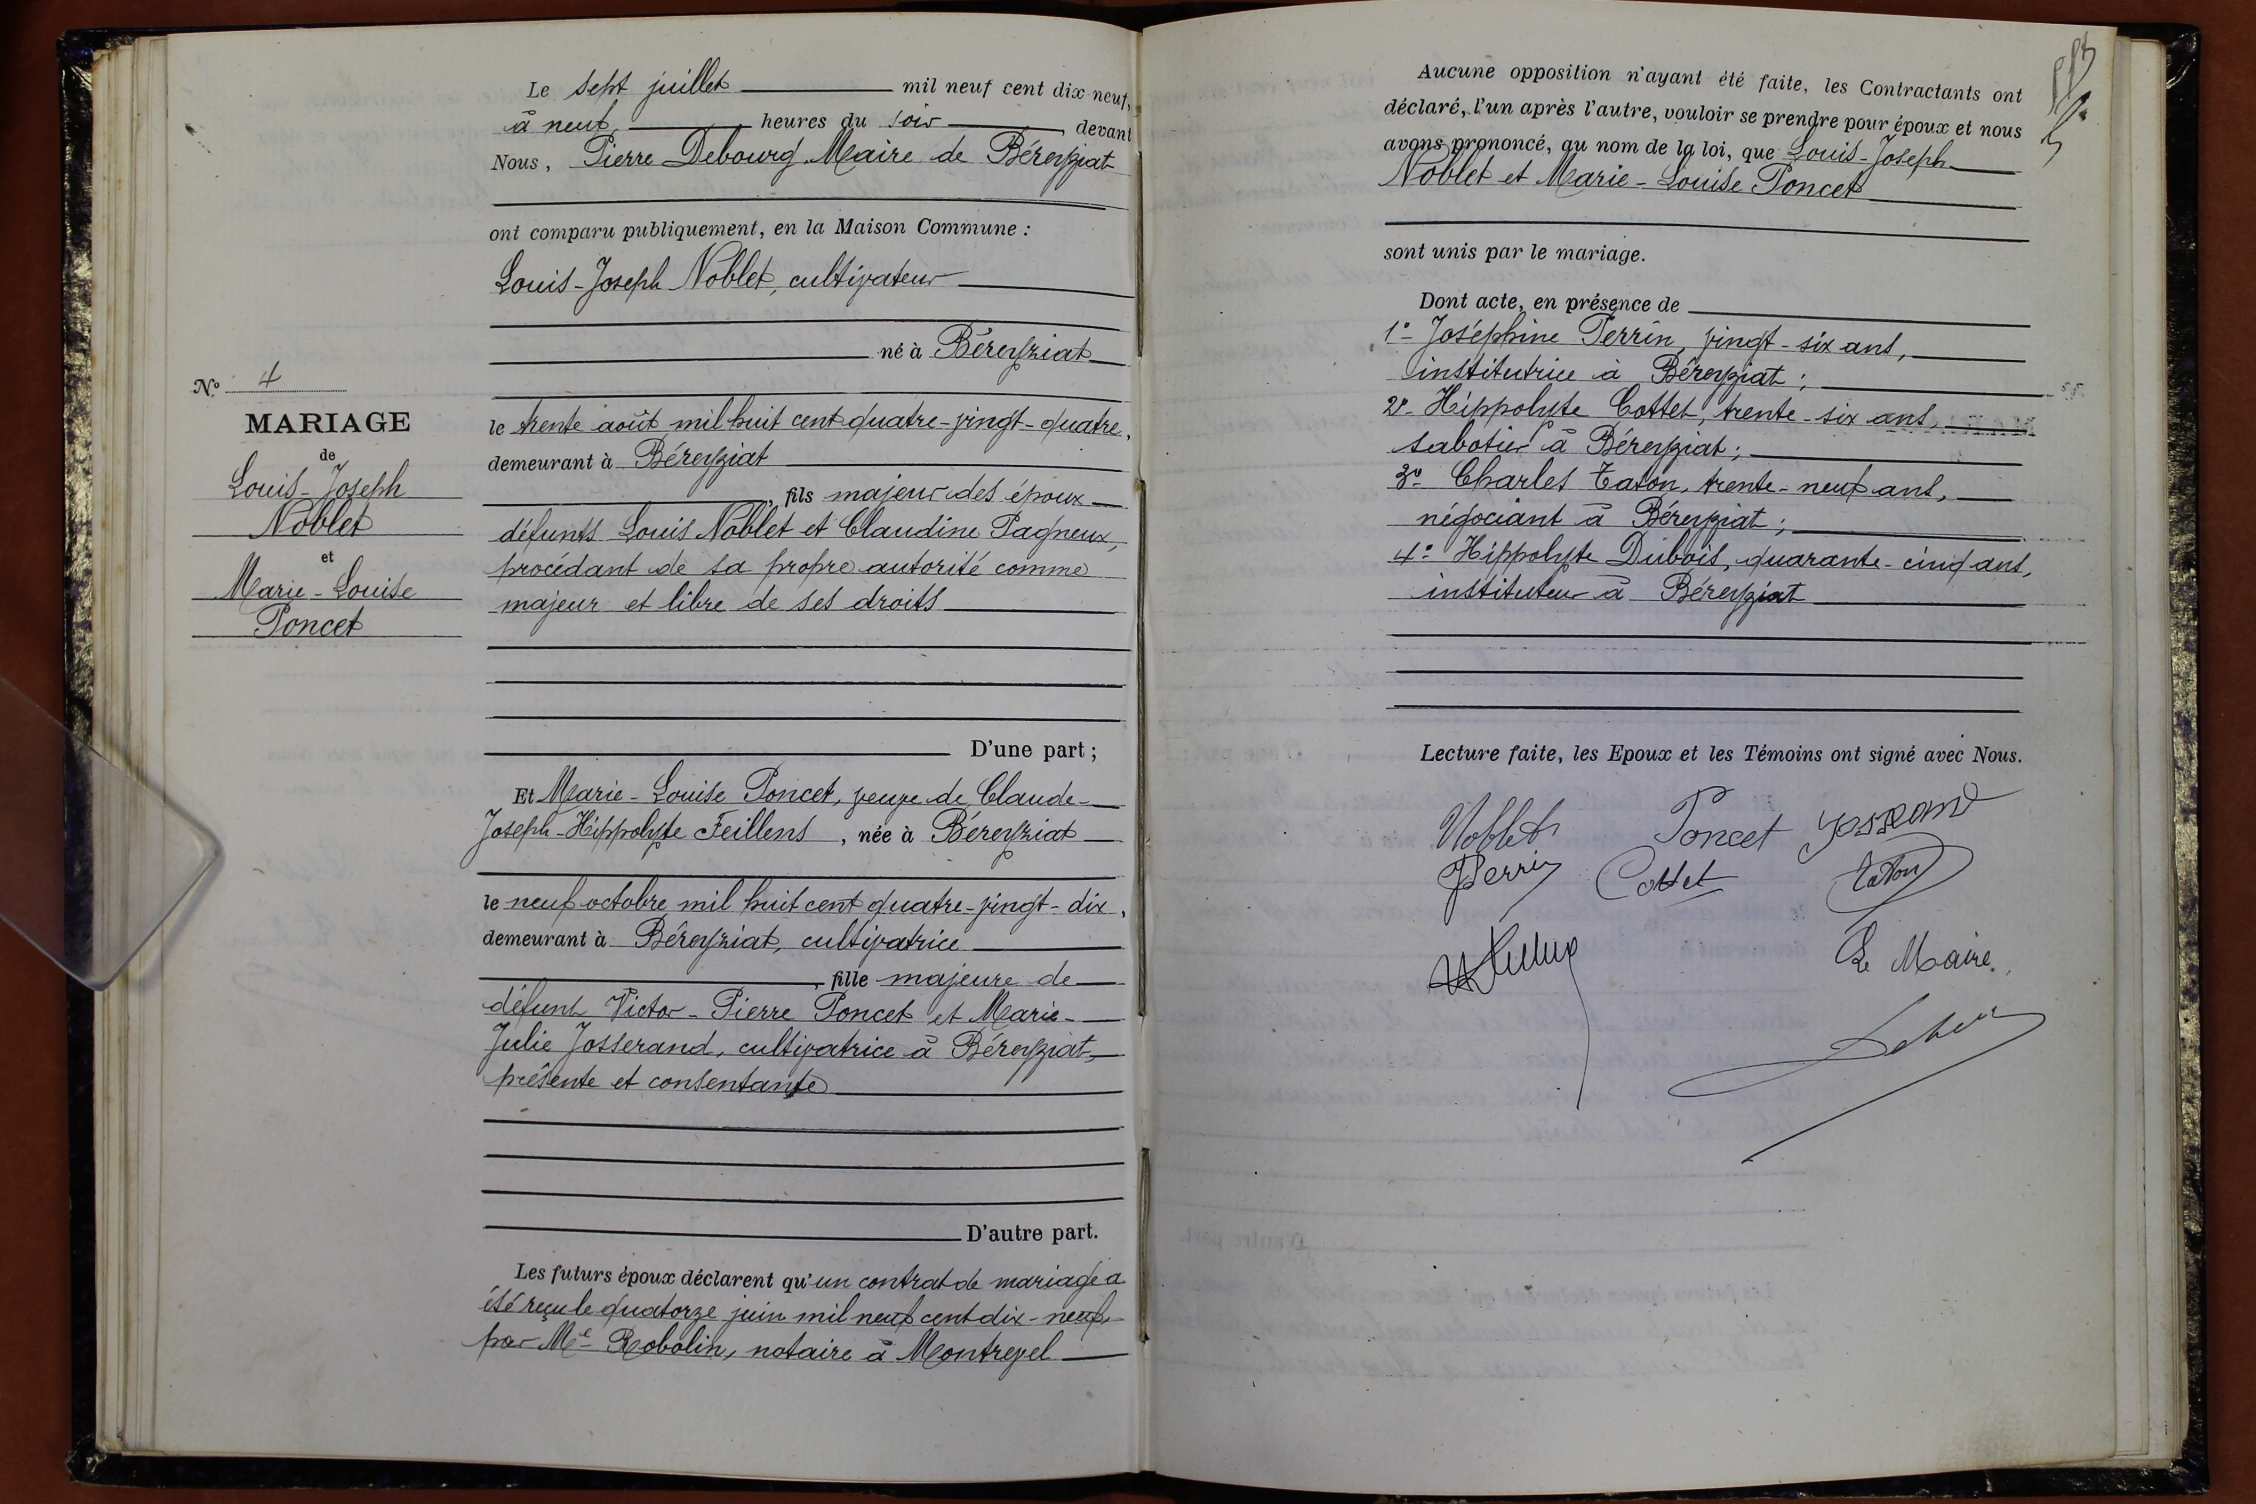 Le sept juillet mil neuf cent dix-neuf,
à neuf heures du soir, devant
Nous, Pierre Debourg Maire de Béreyziat
ont comparu publiquement, en la Maison Commune :
Louis-Joseph Noblet, cultivateur
né à Béreyziat
le trente août mil huit cent quatre-vingt-quatre,
demeurant à Béreyziat
, fils majeur des époux
défunts Louis Noblet et Claudine Pagneux,
procédant de sa propre autorité comme
majeur et libre de ses droits
D'une part ;
Et Marie-Louise Poncet, veuve de Claude-
Joseph-Hippolyte Feillens, née à Béreyziat
le neuf octobre mil huit cent quatre-vingt-dix,
demeurant à Béreyziat, cultivatrice
, fille majeure de
défunt Victor-Pierre Poncet et Marie-
Julie Josserand, cultivatrice à Béreyziat,
présente et consentante
D'autre part.
Les futurs époux déclarent qu'un contrat de mariage a
été reçu le quatorze juin mil neuf cent dix-neuf
par Me Robolin, notaire à Montrevel
No 4
MARIAGE
de
Louis-Joseph
Noblet
et
Marie-Louise
Poncet
Aucune opposition n'ayant été faite, les Contractants ont
déclaré, l'un après l'autre, vouloir se prendre pour époux et nous
avons prononcé, au nom de la loi, que Louis-Joseph
Noblet et Marie-Louise Poncet
sont unis par le mariage.
Dont acte, en présence de
1o- Joséphine Perrin, vingt-six ans,
institutrice à Béreyziat ;
2o- Hippolyte Cottet, trente-six ans,
sabotier à Béreyziat ;
3o- Charles Taton, trente-neuf ans,
négociant à Béreyziat ;
4o- Hippolyte Dubois, quarante-cinq ans,
instituteur à Béreyziat
Lecture faite, les Epoux et les Témoins ont signé avec Nous.
Noblet Poncet Josserand
JPerrin Cottet Taton
Le Maire,